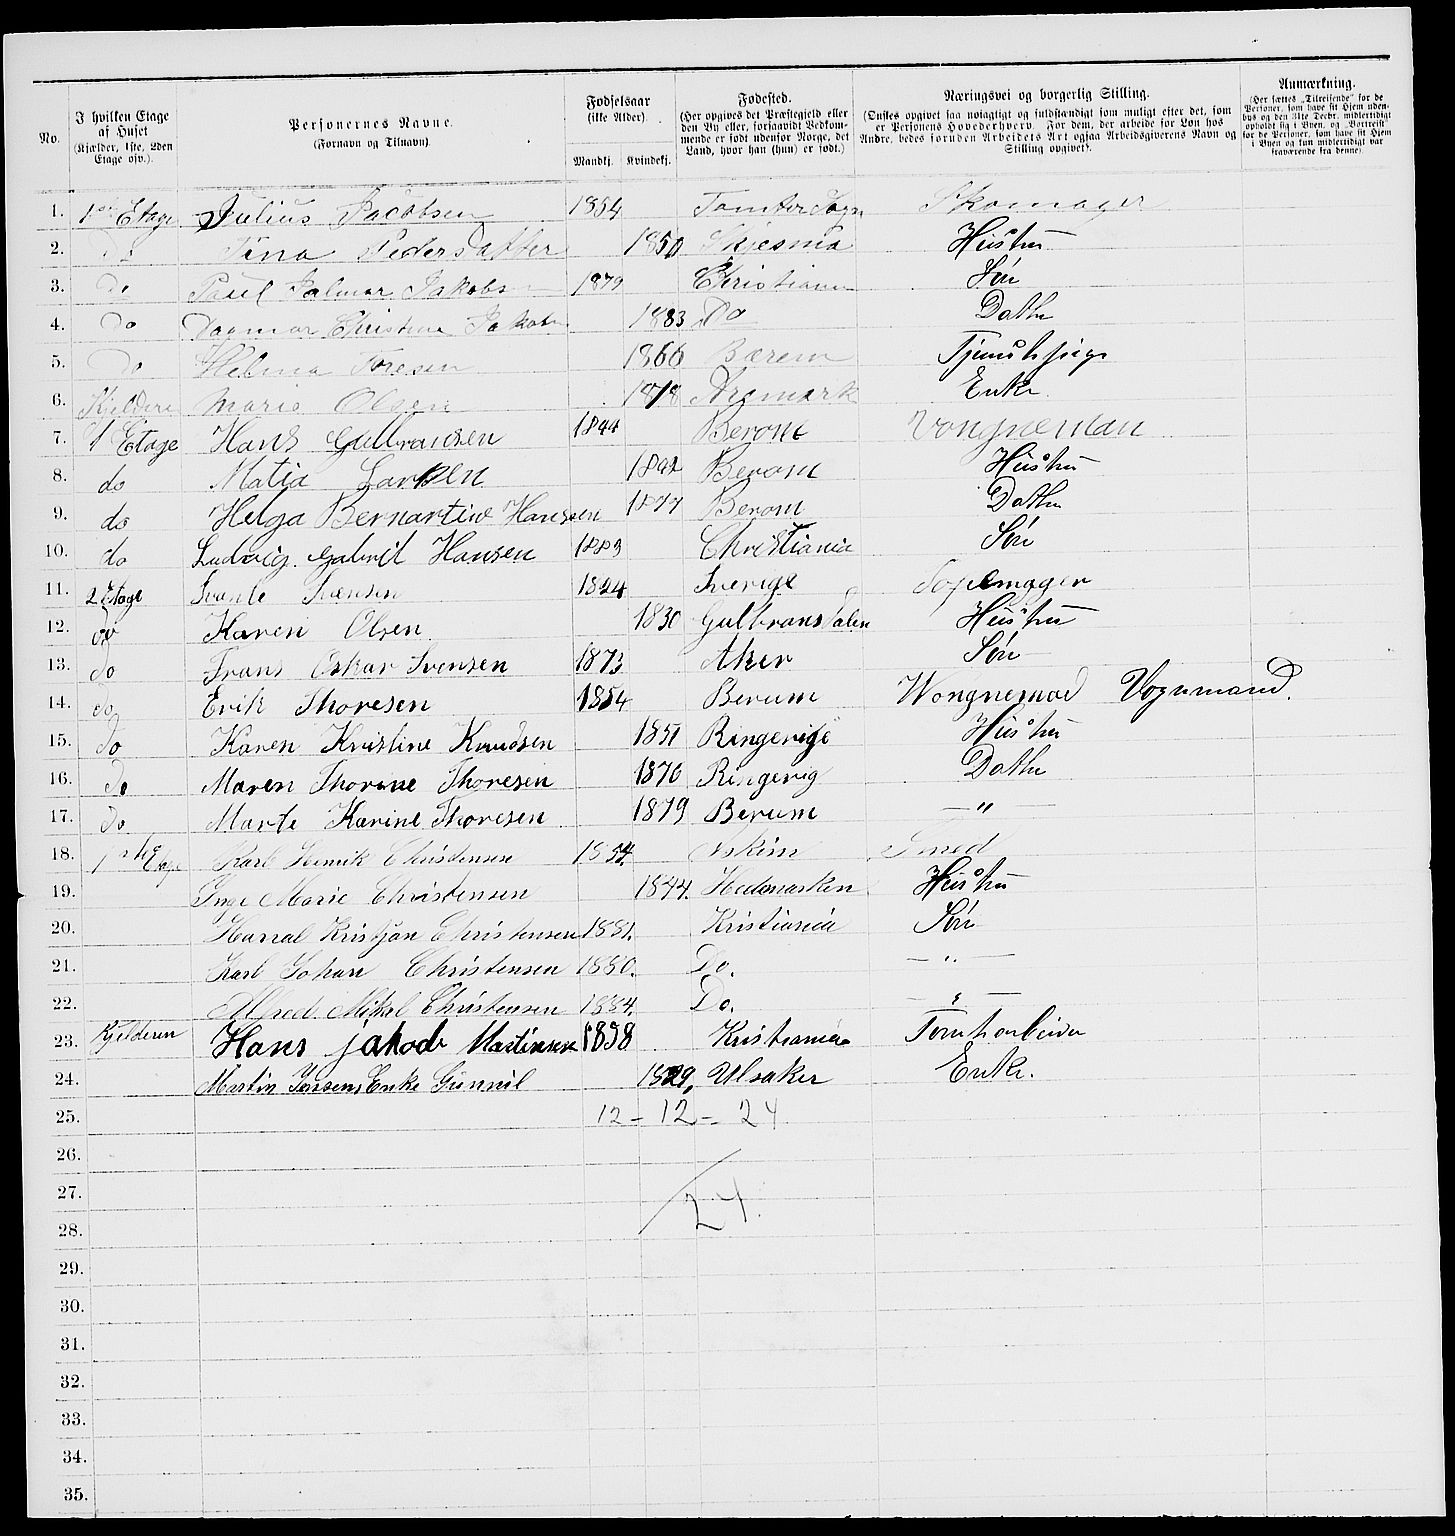 No. | I hvilken Etage af Huset (Kjælder, 1ste, 2den Etage osv.). | Personernes Navne. (Fornavn og Tilnavn) | Fødselsaar (ikke Alder). Mandkj. | Kvindekj. | Fødested. (Her opgives det Præstegjeld eller den By eller, forsaavidt Vedkommende er født udenfor Norge, det Land, hvor han (hun) er født.) | Næringsvei og borgerlig Stilling. (Ønskes opgivet saa nøiagtigt og fuldstændigt som muligt efter det, som er Personens Hovederhverv. For dem, der arbeide for Løn hos Andre, bedes foruden Arbeidets Art ogsaa Arbeidsgiverens Navn og Stilling opgivet). | Anmærkning. (Her sættes „Tilreisende" for de Personer, som have sit Hjem udenbys og den 31te Decbr. midlertidigt opholdt sig i Byen, og „Bortreist" for de Personer, som have sit Hjem i Byen og kun midlertidigt var fraværende fra denne).
1. 1ste Etage Julius Jacobsen 1854 Tomter Sogn Skomager
2. Do Tina Pedersdatter 1850 Hustru
3. Do Paul Jakobs 1879 Christiania Søn
4. Do Dagmar Christine Jakobs 1883 Do Datter
5. Do Helma Toresen 1866 Bærem
6. Kjelderen Marie Olsen 1818 Aremark Enke
7. 1 Etage Hans Gulbransen 1844 Berom Vongneman
8. do Matia Larsen Berom Hustru
9. do Helga Bernartine Hanssen 1877 Berom Datter
10. do Ludvig Gabril Hansen 1883 Christiania Søn
11. 2 Etage Svante Svensen 1824 Sverige
12. do Karen Olsen 1830 Gulbransdalen Hustru
13. do Frans Oskar Svensen 1873 Aker Søn
14. do Erik Thoresen 1854 Berum Wongnemad Vognmand.
15. do Karen Kristine Knudsen 1851 Ringerige Hustru
16. do Maren Thorine Thoresen 1876 Ringerig Datter
17. do Marte Karine Thoresen 1879 Berum — " —
18. 1ste Etage Karl Henrik Christensen 1854. Askim Smed
19. Inge Marie Christensen 1844. Hedemarken Hustru
20. Harral Kristjan Christensen 1881. Kristiania Søn
21. Karl Johan Christensen 1880. Do. — " —
22. Alfred Mikal Christensen 1884. Do. — " —
23. Kjelderen Hans jakob Martinsen 1858 Kristiania Tomtarbeider
24. Martin Jensens Enke Gunnil 1829, Ulsaker Enke.
25. 12 – 12 – 24
26.
27. 24.
28.
29.
30.
31.
32.
33.
34.
35.